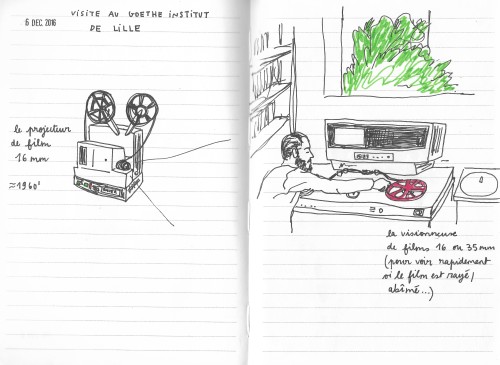 6 DEC 2016
VISITE AU GOETHE INSTITUT
DE LILLE
le projecteur
de film
16 mm
≈1960'
la visionneuse
de films 16 ou 35 mm
(pour voir rapidement
si le film est rayé/
abîmé...)